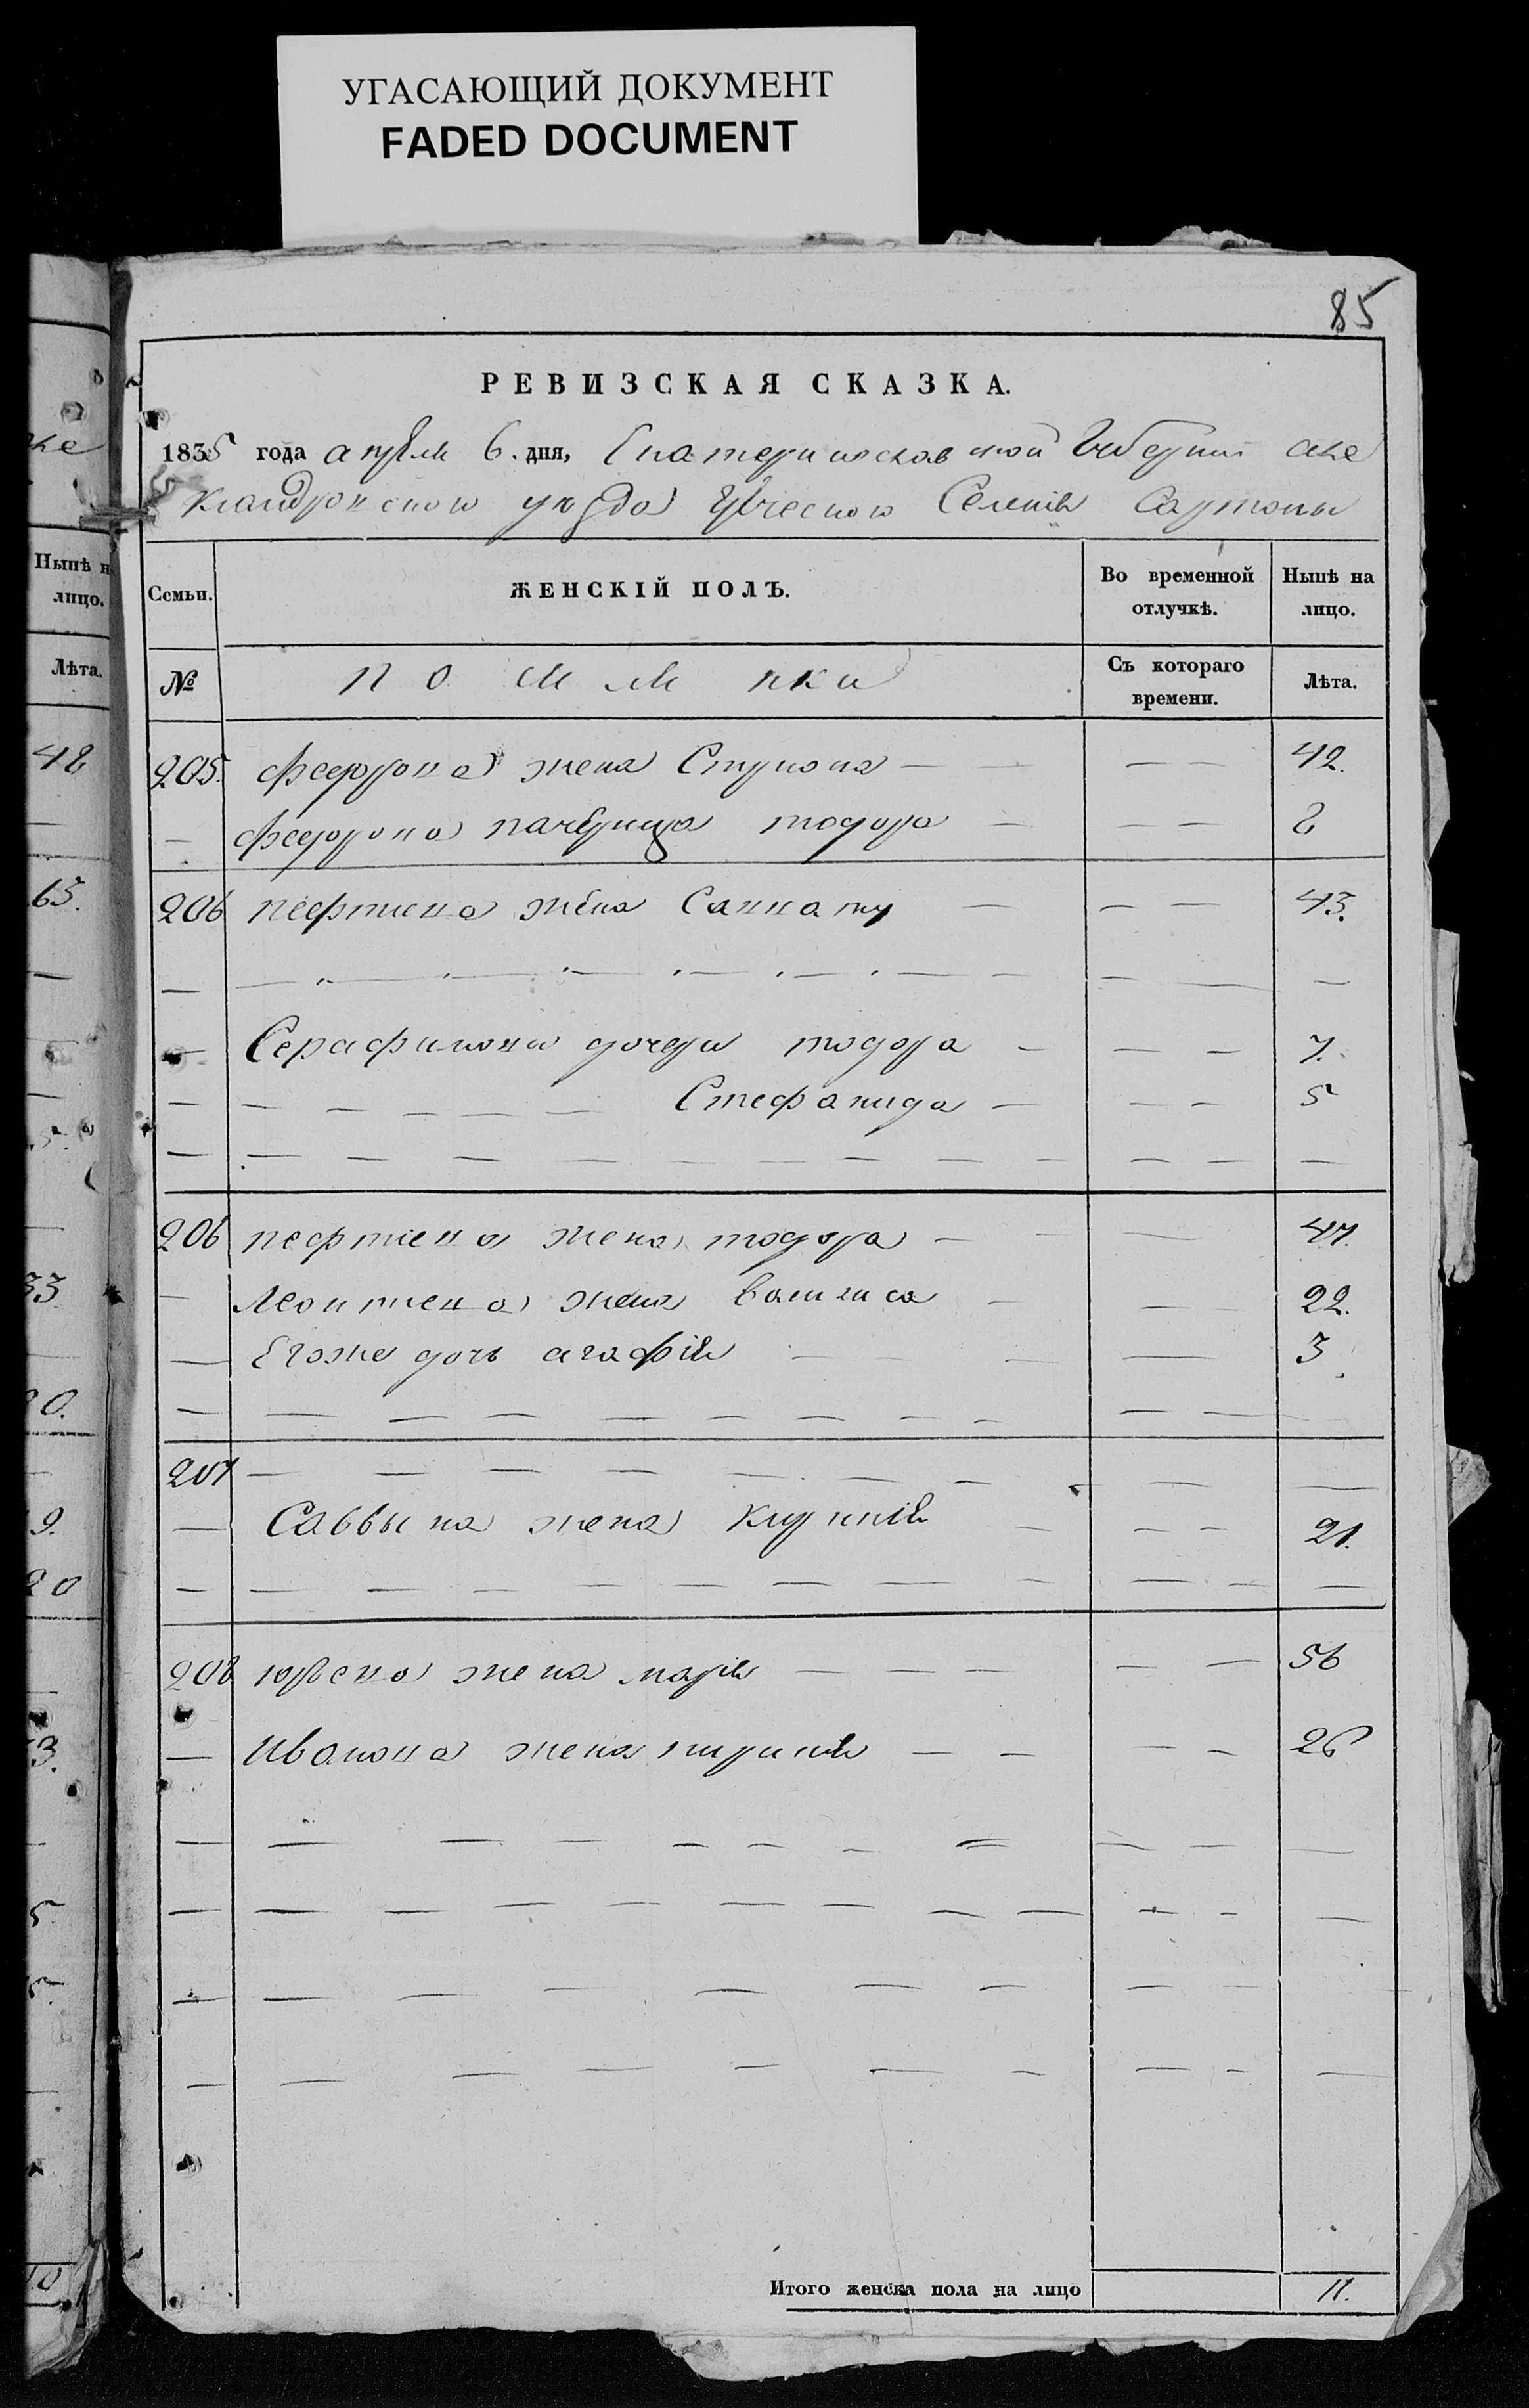 УГАСАЮЩИЙ ДОКУМЕНТ
FADED DOCUMENT
85
РЕВИЗСКАЯ СКАЗКА.
1835 года апреля 6. дня, Екатеринославской Губернии але
ксандровского уезда Греческого Селенія Сартаны
Семьи.
ЖЕНСКІЙ ПОЛЪ.
Во временной отлучкѣ.
Нынѣ на лицо.
№
Съ котораго времени.
Лѣта.
205. федорова жена 42.
федорова падчерица тодора 8
206 жена 43.
Серафимова дочери тодора 7.
Стефанида 5
206 жена тодора 47.
Леонтиева жена василиса 22.
Егоже дочь агафія 3
207
Саввына жена 21.
208 жена марія 56
иванова жена 26
Итого женска пола на лицо 11.
Нынѣ н
лицо.
Лѣта.
48
65.
33
20.
9.
20
3.
5
5.
10